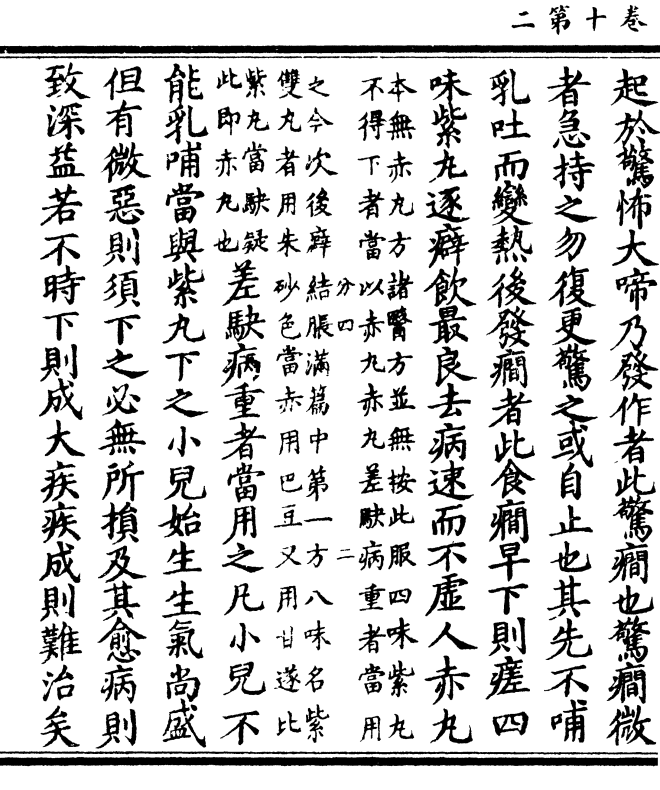 卷十第二
起於驚怖大啼乃發作者此驚癇也驚癇微
者急持之勿復更驚之或自止也其先不哺
乳吐而變熱後發癇者此食癇早下則瘥四
味紫丸逐癖飲最良去病速而不虛人赤丸
本無赤丸方諸醫方並無按此服四味紫丸
不得下者當以赤丸赤丸差駃病重者當用
分四
二
之今次後癖結脹滿篇中第一方八味名紫
雙丸者用朱砂色當赤用巴豆又用甘遂比
紫丸當駃疑
此即赤丸也
差駃病重者當用之凡小兒不
能乳哺當與紫丸下之小兒始生生氣尚盛
但有微惡則須下之必無所損及其愈病則
致深益若不時下則成大疾疾成則難治矣